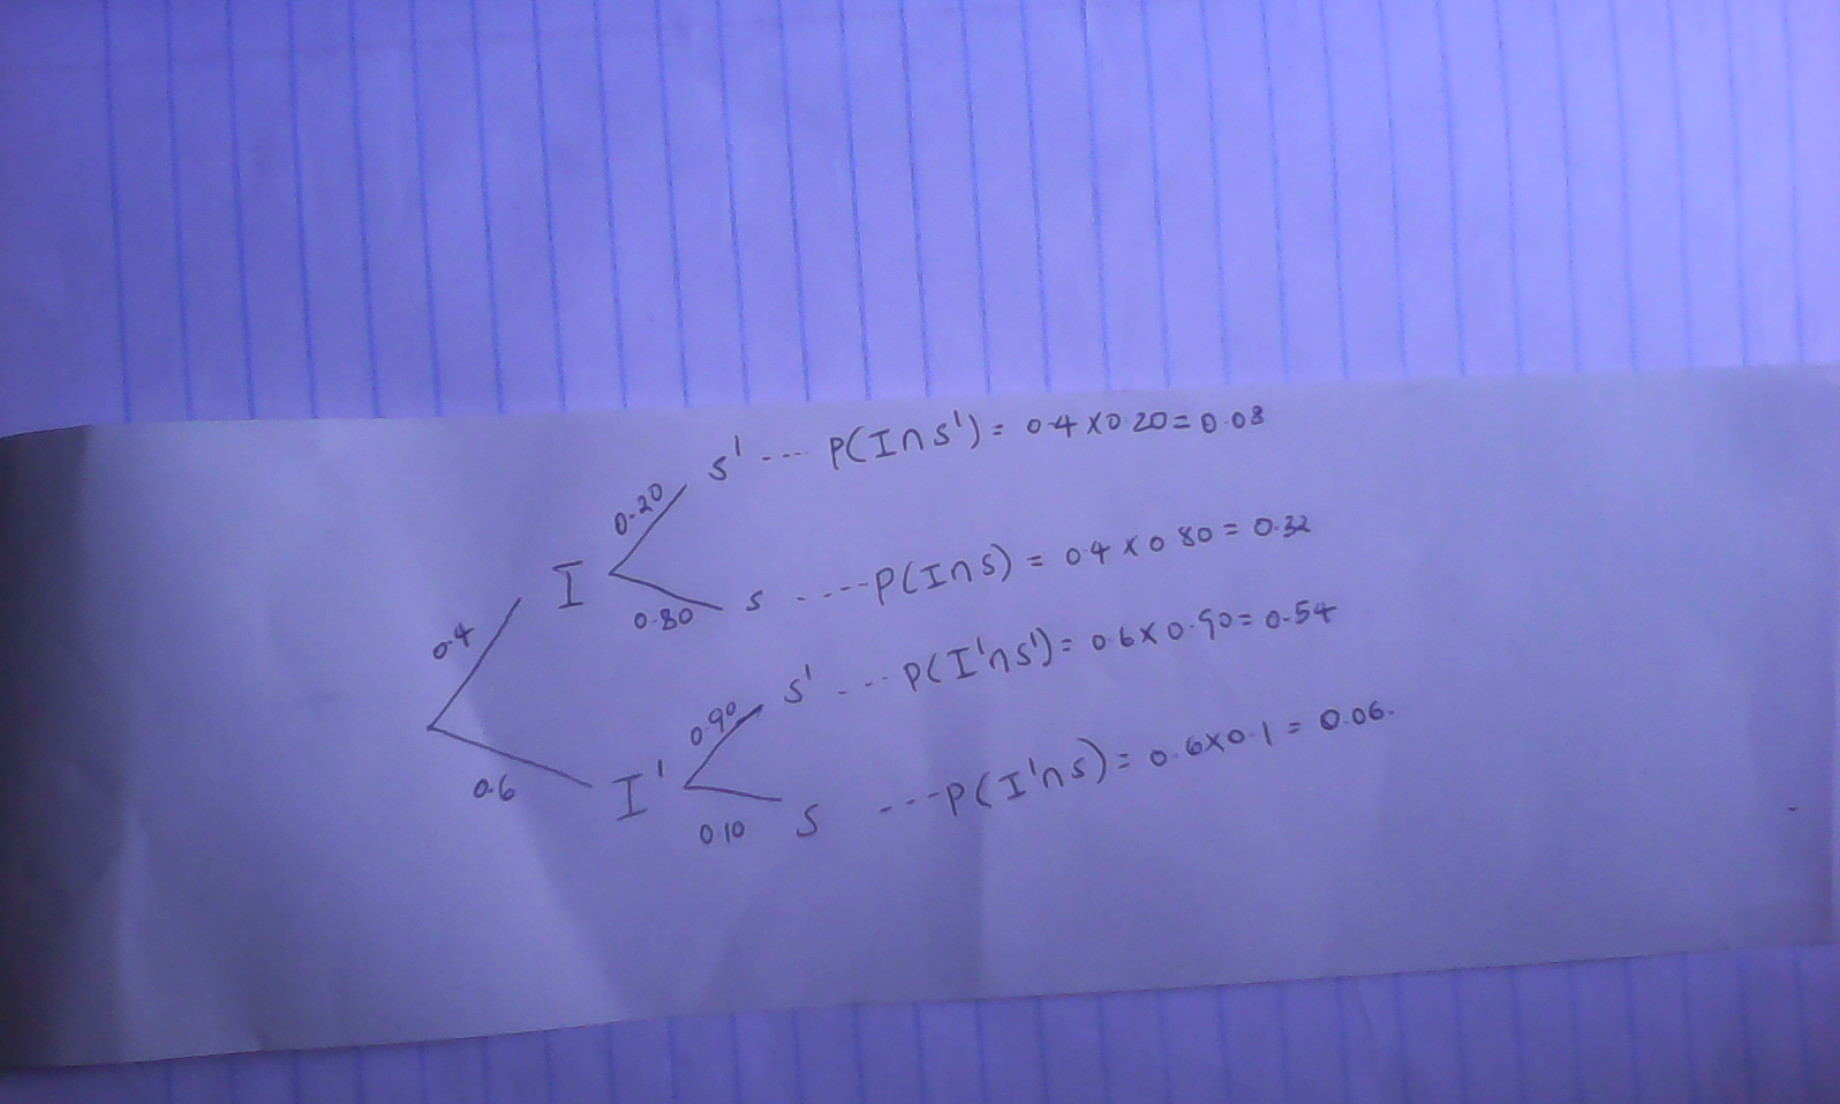 0.20 S' .... P(I∩S') = 0.4 X 0.20 = 0.08
0.4 I 0.80 S ..... P(I∩S) = 0.4 X 0.80 = 0.32
0.90 S' .... P(I'∩S') = 0.6 X 0.90 = 0.54
0.6 I' 0.10 S ... P(I'∩S) = 0.6 X 0.1 = 0.06.